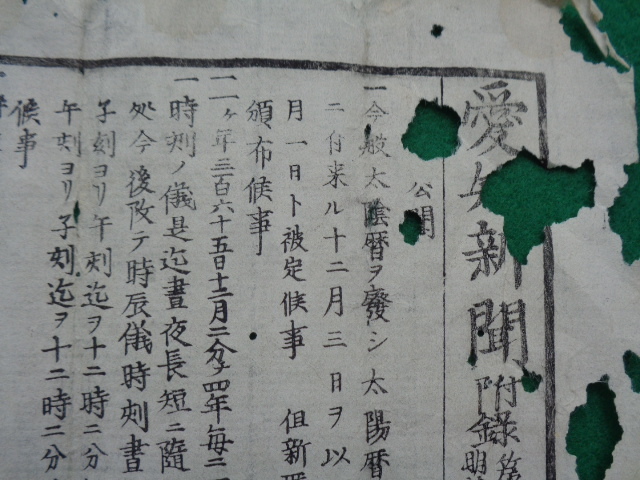 愛知新聞附録第
明治
公聞
一今般太陰暦ヲ廢シ太陽暦
ニ付来ル十二月三日ヲ以
月一日ト被定候事　但新暦
頒布候事
一一ヶ年三百六十五日十二月ニ分チ四年毎ニ一
一時刻ノ儀是迄晝夜長短ニ隨
処今後改テ時辰儀時刻晝
子刻ヨリ午刻迄ヲ十二時ニ分
午刻ヨリ子刻迄ヲ十二時ニ分
候事